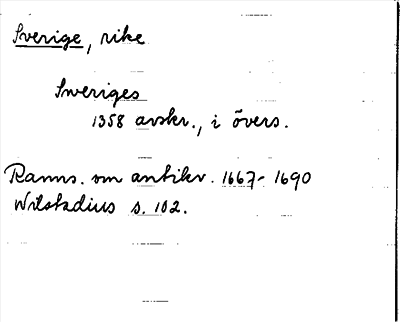 Sverige, rike
Sveriges
1358 avskr., i övers.
Ranns. om antikv. 1667-1690
Wilstadius s. 102.